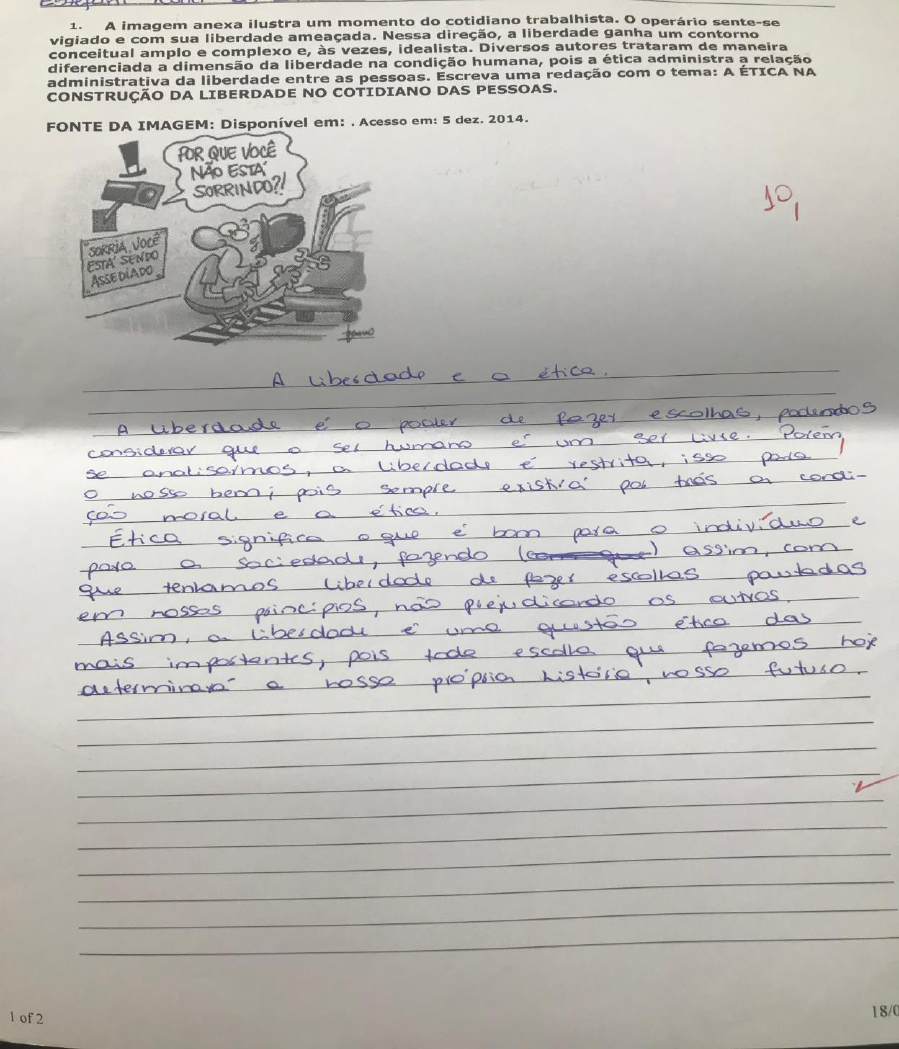 1. A imagem anexa ilustra um momento do cotidiano trabalhista. O operário sente-se
vigiado e com sua liberdade ameaçada. Nessa direção, a liberdade ganha um contorno
conceitual amplo e complexo e, às vezes, idealista. Diversos autores trataram de maneira
diferenciada a dimensão da liberdade na condição humana, pois a ética administra a relação
administrativa da liberdade entre as pessoas. Escreva uma redação com o tema: A ÉTICA NA
CONSTRUÇÃO DA LIBERDADE NO COTIDIANO DAS PESSOAS.
FONTE DA IMAGEM: Disponível em: . Acesso em: 5 dez. 2014.
POR QUE VOCÊ
NÃO ESTÁ
SORRINDO?!
"SORRIA, VOCÊ
ESTÁ SENDO
ASSEDIADO"
10,
A liberdade e a ética.
A liberdade é o poder de fazer escolhas, podendos
considerar que o ser humano é um ser livre. Porém,
se analisarmos, a liberdade é restrita, isso para
o nosso bem; pois sempre existirá por trás a condi-
ção moral e a ética.
Ética significa o que é bom para o indivíduo e
para a sociedade, fazendo assim, com
que tenhamos liberdade de fazer escolhas pautadas
em nossos princípios, não prejudicando os outros.
Assim, a liberdade é uma questão ética das
mais importantes, pois toda escolha que fazemos hoje
determinará a nossa própria história, nosso futuro.
1 of 2
18/0